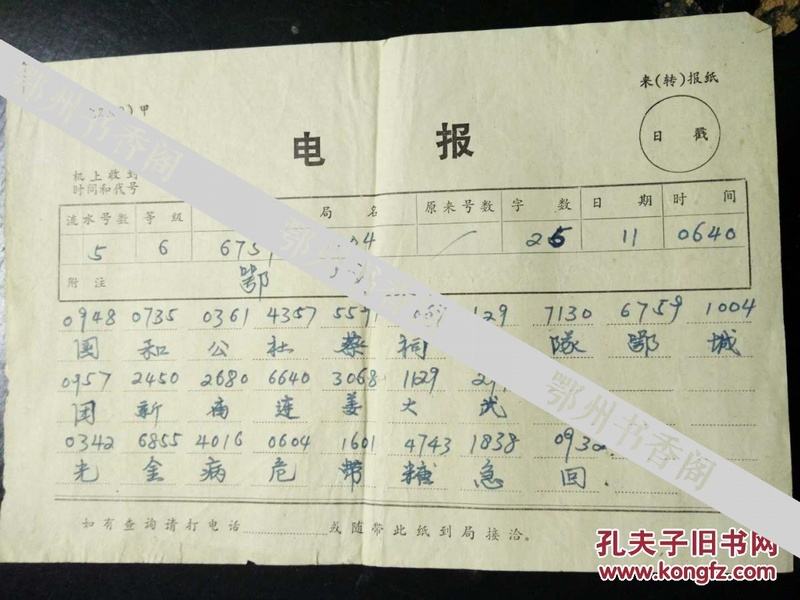 来(转)报纸
甲
电 报
日 戳
机上收到
时间和代号
流水号数 等级 局名 原来号数 字数 日期 时间
5 6 6759 04 / 25 11 0640
附注 鄂
0948 0735 0361 4357 1129 7130 6759 1004
国 和 公 社 蔡 祠 队 鄂 城
0957 2450 2680 6640 3068 1129
国 新 有 连 姜 大 武
0342 6855 4016 0604 1601 4743 1838 093
光 金 病 危 带 糖 急 回.
如有查询请打电话 或随带此纸到局接洽。
鄂州书香阁
鄂州书香阁
孔夫子旧书网
KONGFZ.COM